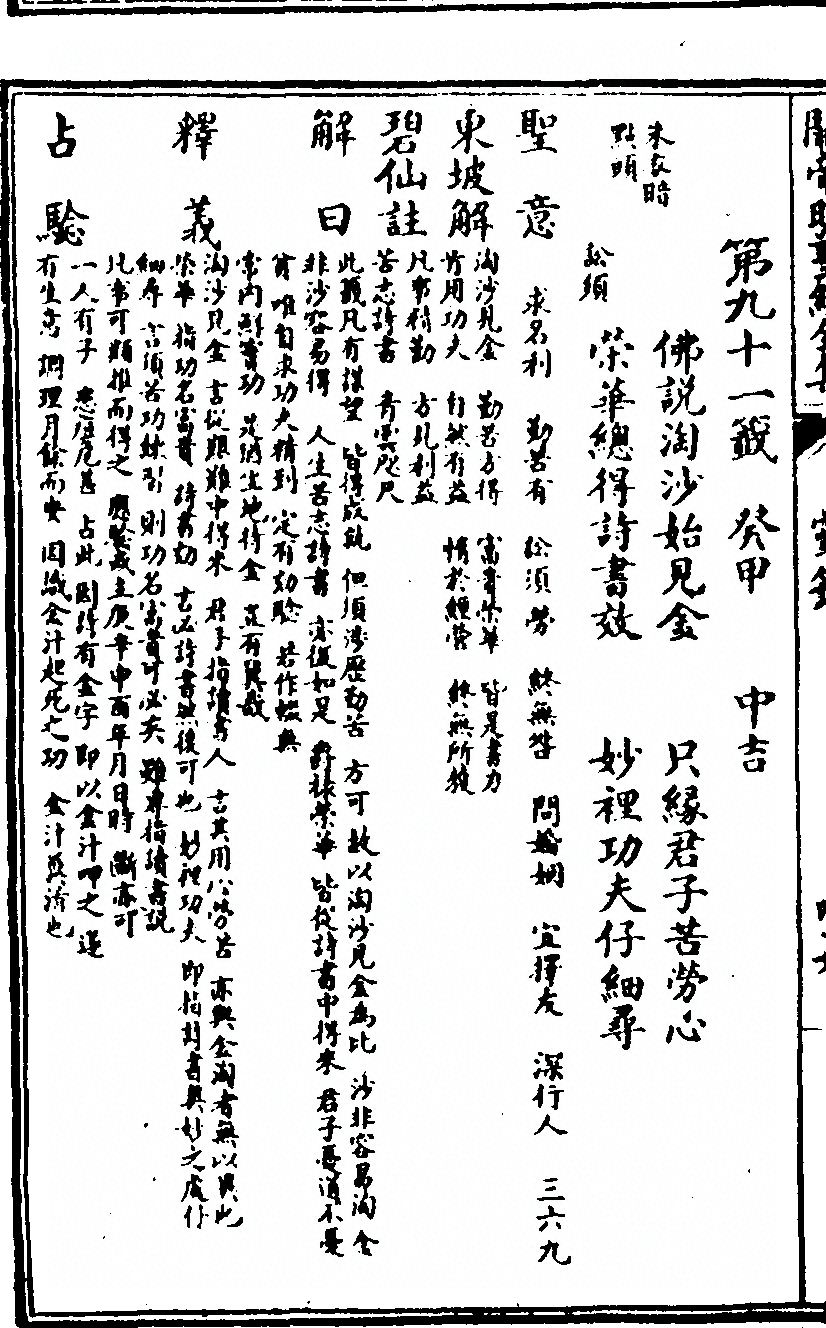 第九十一籤 癸甲 中吉
佛說淘沙始見金 只緣君子苦勞心
榮華總得詩書效 妙裡功夫仔細尋
朱衣暗
點頭
訟須
聖意 求名利 勤苦有 訟須勞 終無咎 問婚姻 宜擇友 深行人 三六九
東坡解 淘沙見金 勤苦方得 富貴榮華 皆是書力
肯用功夫 自然有益 惰於經營 終無所獲
碧仙註 凡事精勤 方見利益
苦志詩書 青雲咫尺
解曰 此籤凡有謀望 皆得成就 但須涉歷勤苦 方可 故以淘沙見金為比 沙非容易淘 金
非沙容易得 人生苦志詩書 亦復如是 爵祿榮華 皆從詩書中得來 君子憂道不憂
貧 唯自求功夫精到 定有効驗 若作輟無
常 內鮮實功 是猶坐地待金 豈有獲哉
釋義 淘沙見金 言從艱難中得來 君子指讀書人 言其用心勞苦 亦與金淘者無以異也
榮華 指功名富貴 詩書効 言必詩書然後可也 妙裡功夫 即指詩書與妙之處 仔
細尋 言須苦功練習 則功名富貴可必矣 雖專指讀書說
凡事可類推而得之 應驗或主庚辛申酉年月日時 斷亦可
占驗 一人有子 患症危甚 占此 因詩有金字 即以金汁呷之 遂
有生意 調理月餘而安 因識金汁起死之功 金汁